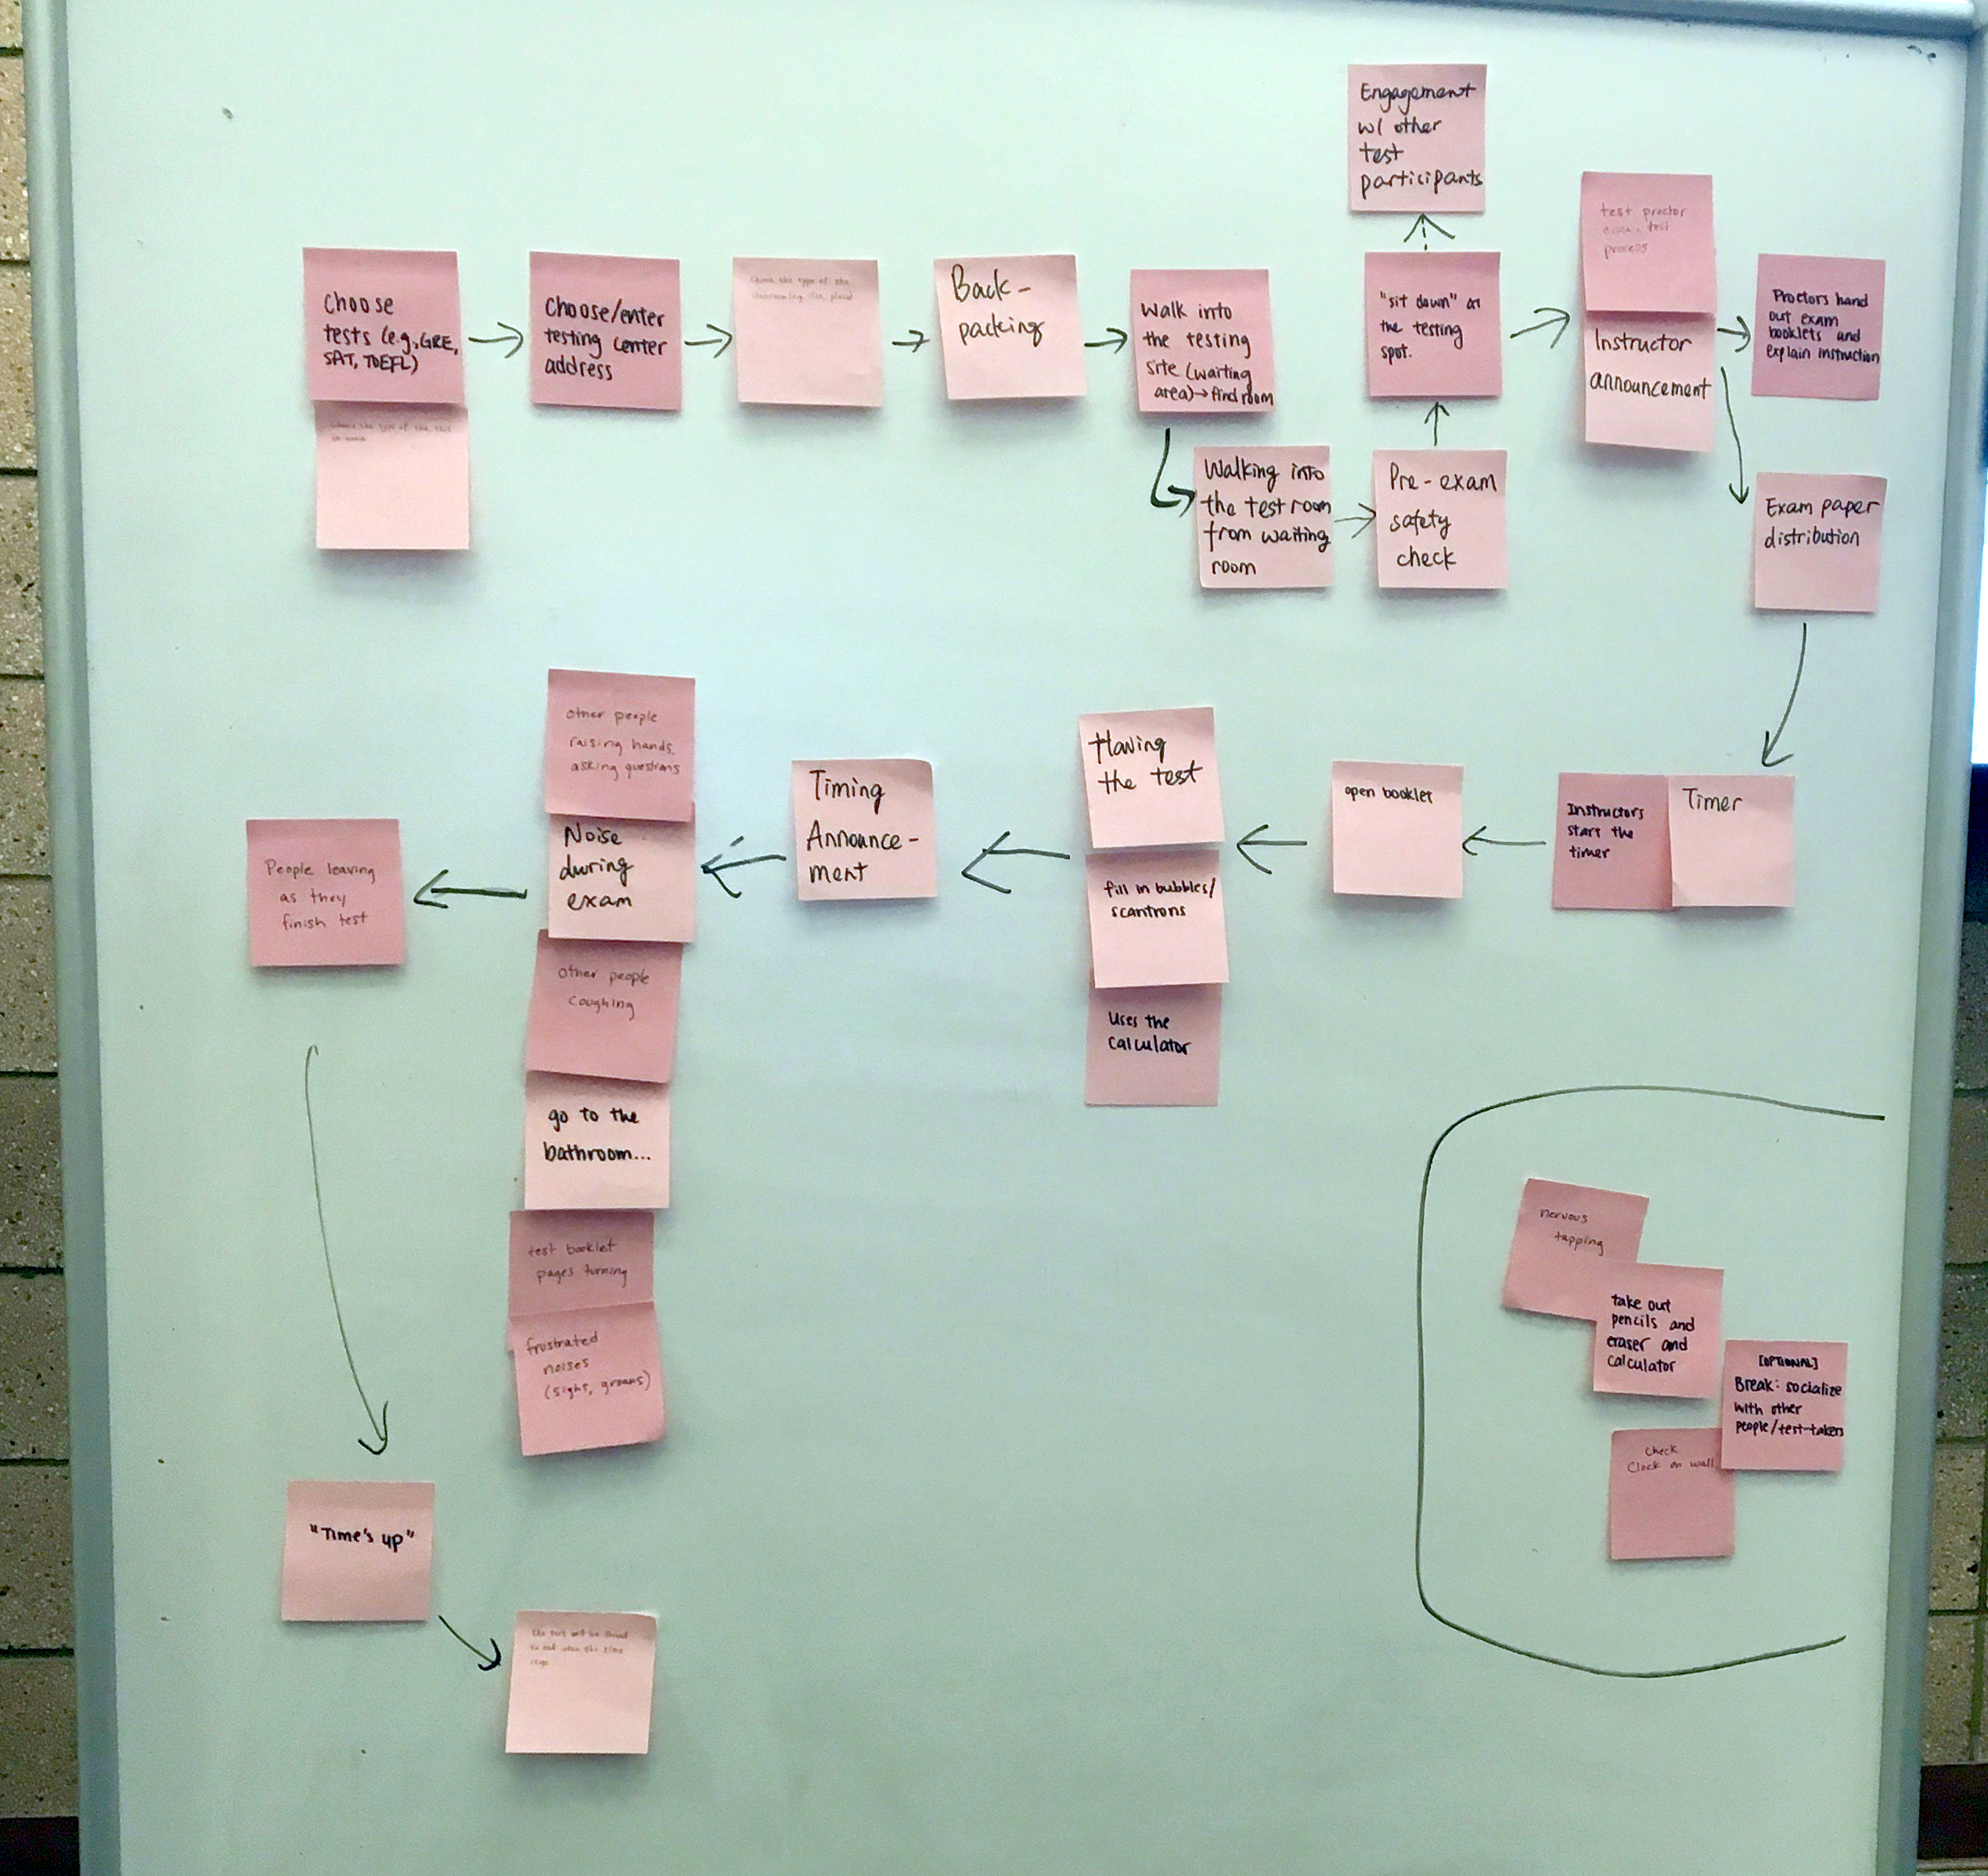 Engagement
w/ other
test
participants
Choose
tests (e.g., GRE,
SAT, TOEFL)
Choose the type of the test
Choose/enter
testing center
address
Choose the type of the
Back-
packing
Walk into
the testing
site (waiting
area)→find room
Walking into
the test room
from waiting
room
Pre-exam
safety
check
"sit down" at
the testing
spot.
test proctor
test
process
Instructor
announcement
Proctors hand
out exam
booklets and
explain instruction
Exam paper
distribution
Timer
Instructors
start the
timer
open booklet
Having
the test
fill in bubbles/
scantrons
Uses the
calculator
Timing
Announce-
ment
other people
raising hands,
asking questions
Noise
during
exam
other people
coughing
go to the
bathroom...
test booklet
pages turning
frustrated
noises
(sighs, groans)
People leaving
as they
finish test
"Time's up"
the test will be
to end when the time
nervous
tapping
take out
pencils and
eraser and
calculator
[OPTIONAL]
Break: socialize
with other
people/test-takers
check
Clock on wall